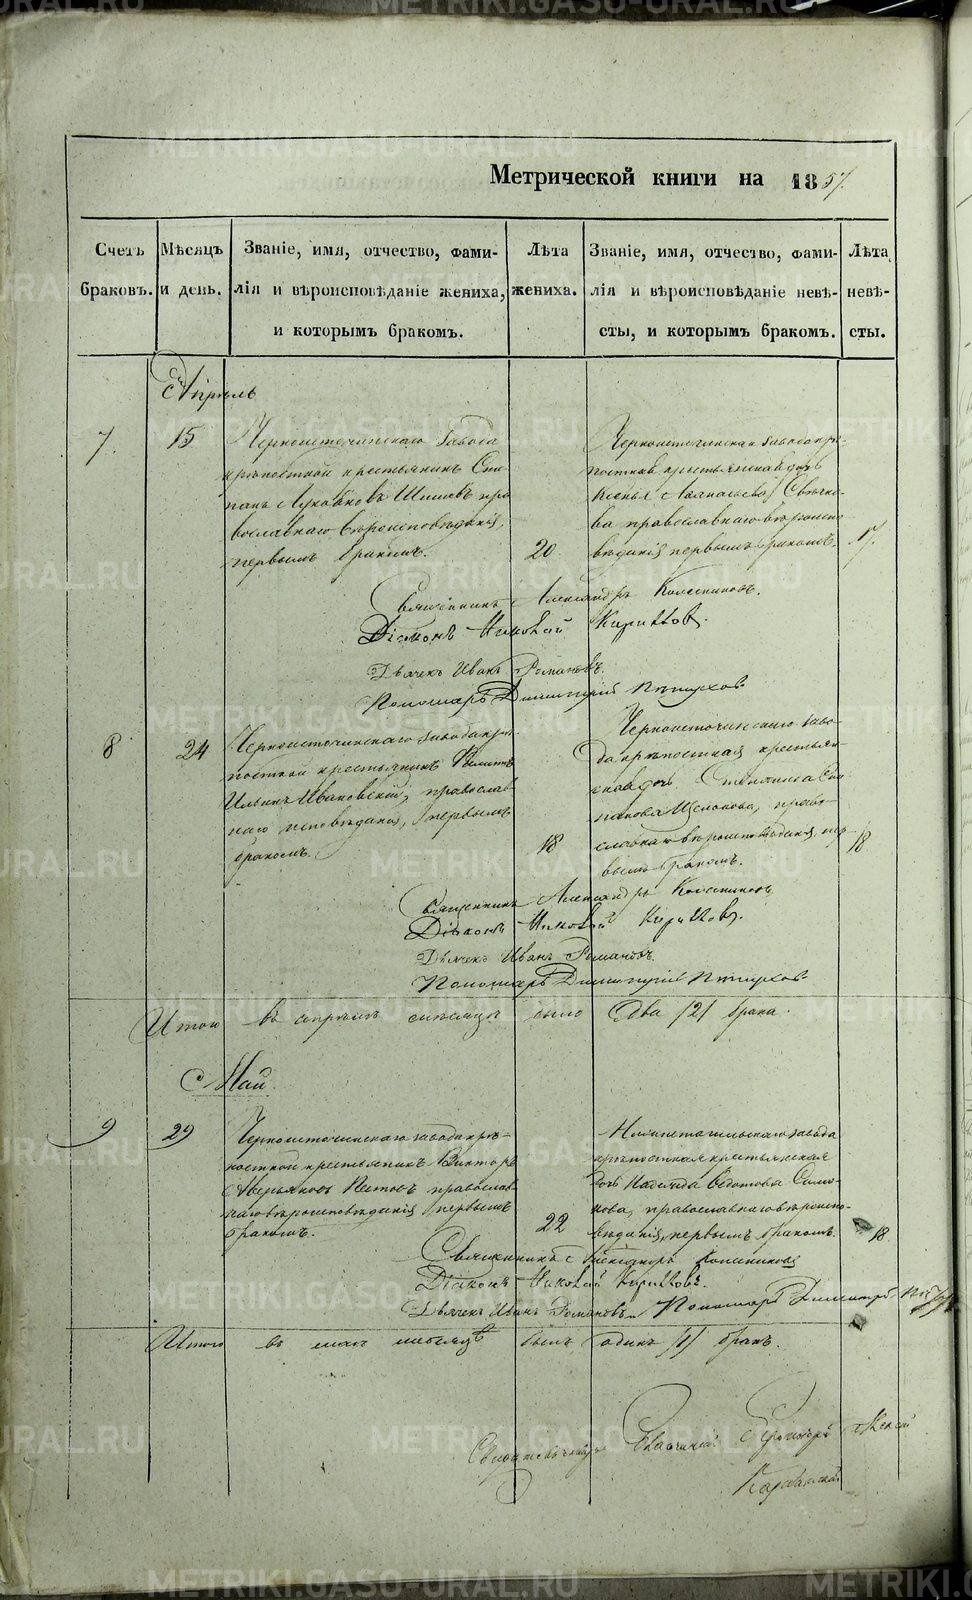 Метрической книги на 1857.
Счетъ браковъ.
Мѣсяцъ и день.
Званіе, имя, отчество, фами-
лія и вѣроисповѣданіе жениха,
и которымъ бракомъ.
Лѣта
жениха.
Званіе, имя, отчество, фами-
лія и вѣроисповѣданіе невѣ-
сты, и которымъ бракомъ.
Лѣта
невѣ-
сты.
Апрѣль
7.
15
Черноисточинскаго завода
крѣпостной крестьянинъ Сте-
панъ Шишевъ пра
вославнаго вѣроисповѣданія,
первымъ бракомъ.
20
Черноисточинскаго завода крѣ-
постная крестьянская дочь
Ксенья
ва православнаго вѣроиспо
вѣданія первымъ бракомъ.
17.
Священникъ Александръ Колесниковъ.
Діаконъ Николай Кирилловъ.
Дьячекъ Иванъ Романовъ.
Пономарь Димитрій
8
24
Черноисточинскаго завода крѣ-
постной крестьянинъ Филиппъ
Ильинъ Ивановскій, православ-
наго исповѣданія, первымъ
бракомъ.
18
Черноисточинскаго заво-
да крѣпостная крестьян-
ская дочь Степанида Сте
панова право-
славнаго вѣроисповѣданія, пер-
вымъ бракомъ.
18
Священникъ Александръ Колесниковъ
Діаконъ Николай Кирилловъ.
Дьячекъ Иванъ Романовъ.
Пономарь Димитрій
Итого въ апрѣлѣ мѣсяцѣ было два /2/ брака.
Май
9
29
Черноисточинскаго завода крѣ-
постной крестьянинъ Викторъ
Аверьяновъ Пестовъ православ-
наго вѣроисповѣданія первымъ
бракомъ.
22
Нижнетагильскаго завода
крѣпостная крестьянская
дочь Надежда Федотова Симо-
нова, православнаго вѣроиспо-
вѣданія, первымъ бракомъ.
18.
Священникъ Александръ Колесниковъ
Діаконъ Николай Кирилловъ.
Дьячекъ Иванъ Романовъ. Пономарь Димитрій
Итого въ маѣ мѣсяцѣ былъ одинъ /1/ бракъ.
METRIKI.GASO-URAL.RU